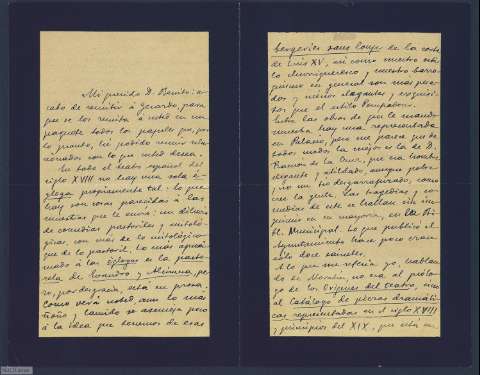 Mi querido D. Benito: a-
cabo de remitir á Gerardo, para
que se los remita á usted en un
paquete todos los papeles que, por
lo pronto, he podido reunir rela-
cionados con lo que usted desea.
En todo el teatro español del
siglo XVIII no hay una sola é-
gloga propiamente tal: lo que
hay son cosas parecidas á las
muestras que le envio: un diluvio
de comedias pastoriles y mitoló-
gicas, con más de lo mitológico
que de lo pastoril. Lo más aproxi-
mado á la Égloga es la pasto-
rela de Lisandro y pe-
ro, por desgracia, está en prosa.
Como verá usted aun lo más
ñoño y se asemeja poco
á la idea que tenemos de esas
bergeries sans loups de la corte
de Luis XV, así como nuestro esti-
lo churrigueresco y nuestro barro-
quismo en general son mas pesa-
dos y menos elegantes y exquisitos
que el estilo Pompadour.
Entre las obras de que le mando
muestra hay una representada
en Palacio, pero me parece que de
todos modos la mejor es la de D.
Ramón de la Cruz, que era hombre
elegante y atildado, aunque pobre
y no un tio desgarrapizado, como
cree la gente. Las tragedias y co-
medias de este se hallan sin im-
primir en su mayoria, en la Bi-
bl. Municipal. Lo que publicó el
Ayuntamiento hace poco eran
solo doce sainetes.
A lo que me refería yo, hablan-
do de Moratín, no era al prólo-
go de los Orígenes del teatro, sino
al Catálogo de piezas dramáti-
cas representadas en el siglo XVIII
y principios del XIX, que está en